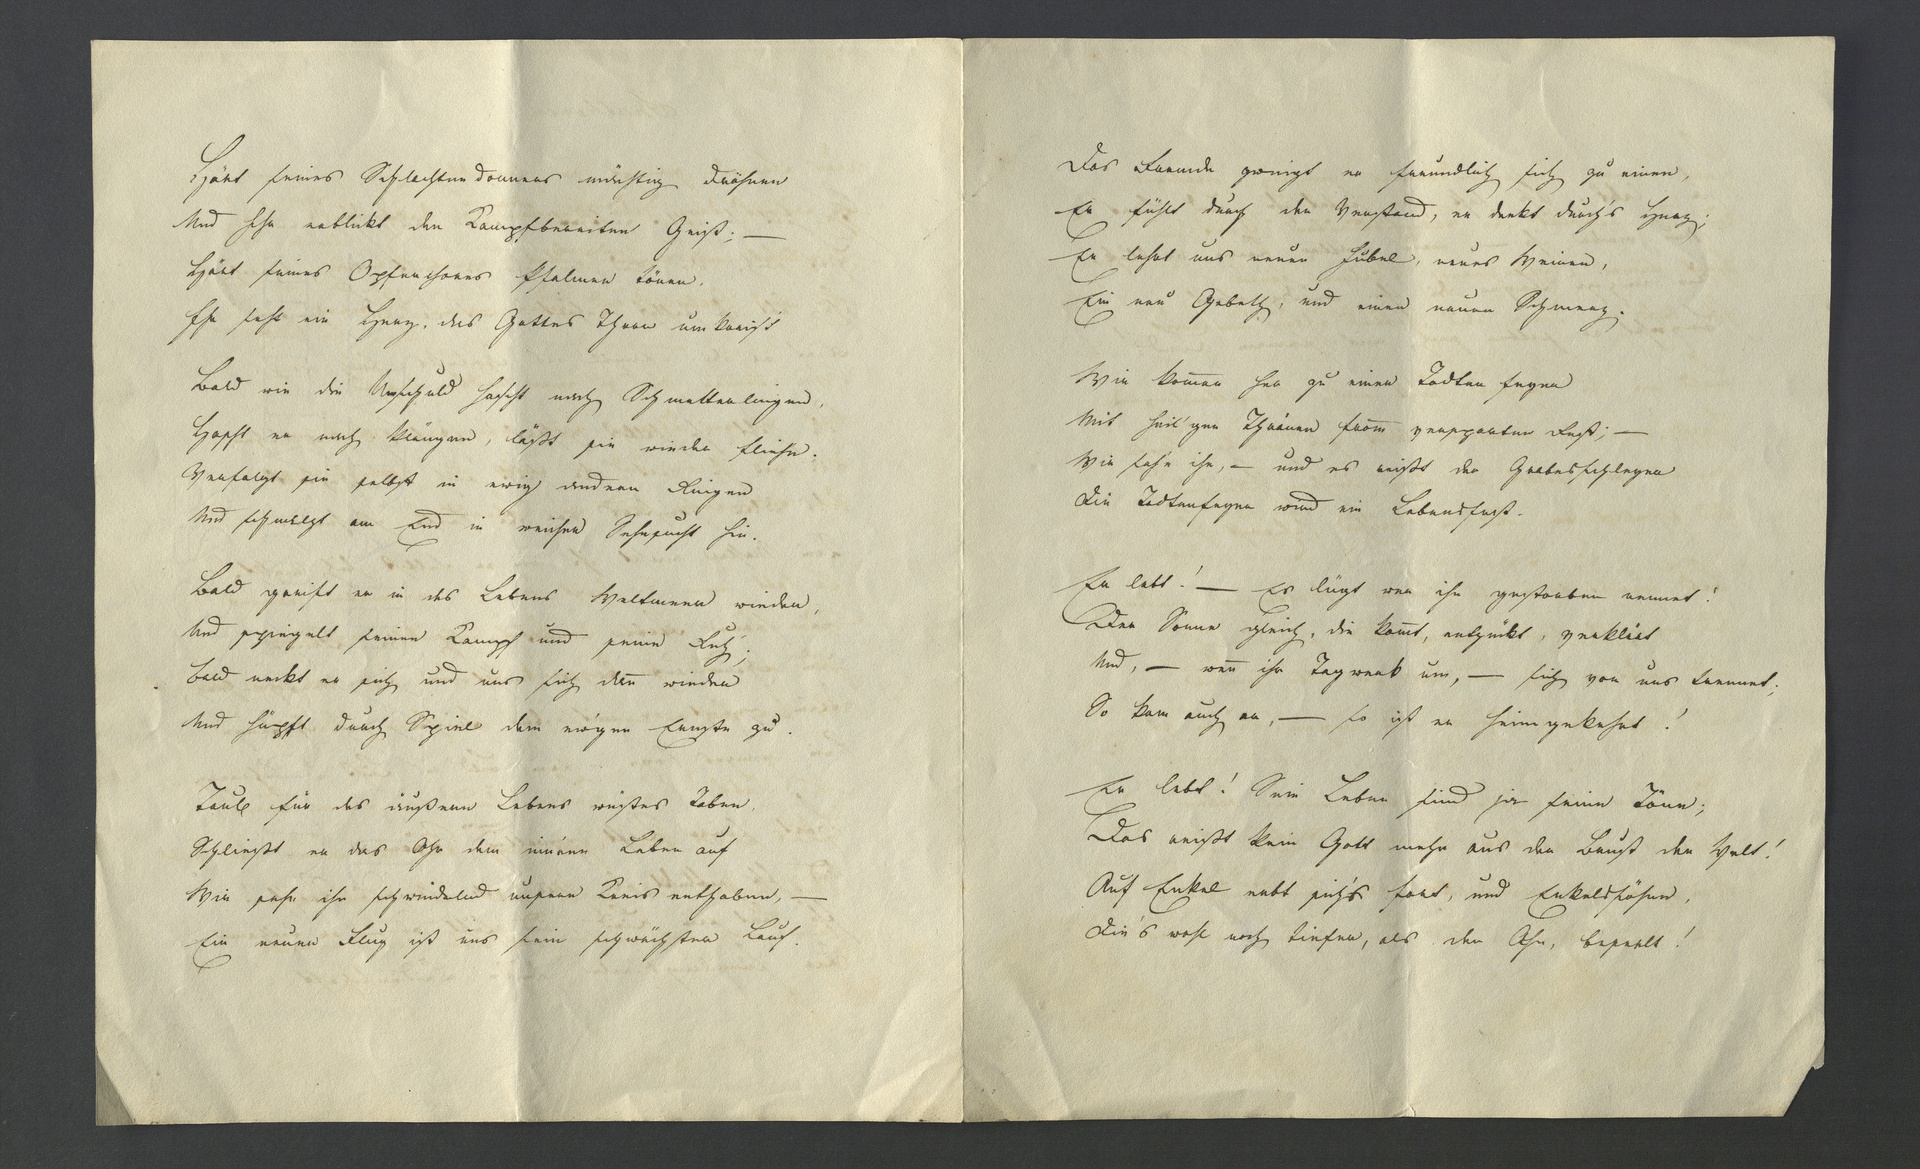 Hört seines Schlachtendonners mächtig Dröhnen
Und Ihr erblickt den Kampfbereiten Geist; —
Hört seines Opferchores Psalmen tönen.
Ihr seht ein Herz, das Gottes Thron umkreis't
Bald wie die Unschuld hascht nach Schmetterlingen,
Hascht er nach Klängen, läßt sie wieder fliehn.
Verfolgt sie selbst in ewig andern Ringen
Und schmelzt am End in weicher Sehnsucht hin.
Bald greift er in des Lebens Weltmeer wieder,
Und spiegelt seinen Kampf und seine Ruh;
Bald neckt er sich und uns sich deñ wieder
Und hüpft durch Spiel dem ew'gen Ernste zu.
Taub für des äußern Lebens wüstes Toben,
Schließt er das Ohr dem innern Leben auf
Wir sehn ihn schwindelnd unserm Kreis enthoben, —
Ein neuer Flug ist uns sein schwächster Lauf.
Das Fremde zwingt er freundlich sich zu einen,
Er fühlt durch den Verstand, er denkt durch's Herz;
Er lehrt uns neuen Jubel, neues Weinen,
Ein neu Gebeth, und einen neuen Schmerz.
Wir kom̄en her zu einer Todtenfeyer
Mit heil'gen Thränen from̄ versparter Lust; —
Wir sehn ihn, — und es reißt der Grabesschleyer
Die Todtenfeyer wird ein Lebensfest.
Er lebt! — Es lügt wer ihn gestorben nennet!
Der Sonne gleich, die kom̄t, entzückt, verklärt
Und, — weñ ihr Tagwerk um, — sich von uns trennet;
So kam auch er, — so ist er heimgekehrt!
Er lebt! Sein Leben sind ja seine Töne;
Das reißt kein Gott mehr aus der Brust der Welt!
Auf Enkel erbt sich's fort, und Enkelssöhne,
Die's wohl noch tiefer, als der Ahn, beseelt!